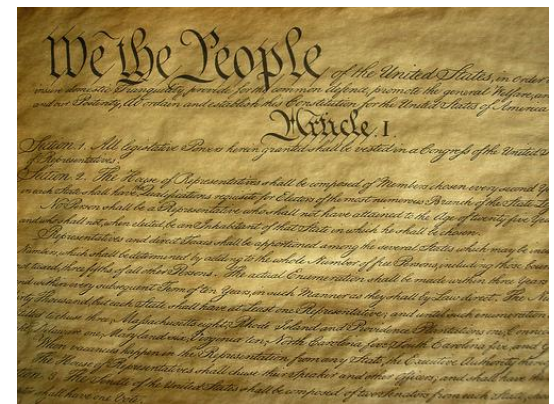 We the People of the United States, in Order
insure domestic Tranquility, provide for the common defence, promote the general Welfare, an
and our Posterity, do ordain and establish this Constitution for the United States of America
Article. I.
Section. 1. All legislative Powers herein granted shall be vested in a Congress of the United
of Representatives.
Section. 2. The House of Representatives shall be composed of Members chosen every second Y
in each State shall have Qualifications requisite for Electors of the most numerous Branch of the State L
No Person shall be a Representative who shall not have attained to the Age of twenty five Yea
and who shall not, when elected, be an Inhabitant of that State in which he shall be chosen.
Representatives and direct Taxes shall be apportioned among the several States which may be in
Numbers, which shall be determined by adding to the whole Number of free Persons, including those boun
not taxed, three fifths of all other Persons. The actual Enumeration shall be made within three Years
and within every subsequent Term of ten Years, in such Manner as they shall by Law direct. The N
thirty Thousand, but each State shall have at Least one Representative; and until such enumeration
entitled to chuse three, Massachusetts eight, Rhode Island and Providence Plantations one, Connec
eight, Delaware one, Maryland six, Virginia ten, North Carolina five, South Carolina five, and G
When vacancies happen in the Representation from any State, the Executive Authority there
The House of Representatives shall chuse their Speaker and other Officers; and shall have th
Section. 3. The Senate of the United States shall be composed of two Senators from each State,
shall have one Vote.